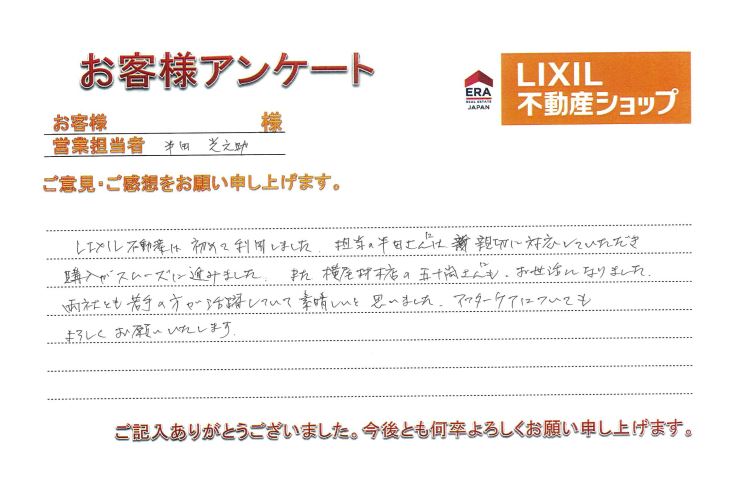 お客様アンケート
ERA
REAL ESTATE
JAPAN
LIXIL
不動産ショップ
お客様 様
営業担当者 半田 光之助
ご意見・ご感想をお願い申し上げます。
LIXIL不動産は初めて利用しました。担当の半田さんには親切に対応していただき
購入がスムーズに進みました。また横尾材木店の五十嵐さんにも、お世話になりました。
両社とも若手の方が活躍していて素晴しいと思いました。アフターケアについても
よろしくお願いいたします。
ご記入ありがとうございました。今後とも何卒よろしくお願い申し上げます。